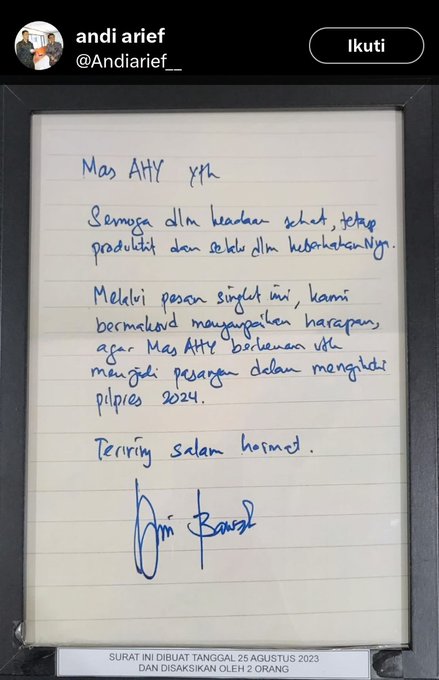 andi arief
@Andiarief__
Ikuti
Mas AHY yth
Semoga dlm keadaan sehat, tetap
produktif dan selalu dlm keberkahanNya.
Melalui pesan singkat ini, kami
bermaksud menyampaikan harapan,
agar Mas AHY berkenan utk
menjadi pasangan dalam mengikuti
pilpres 2024.
Teriring salam hormat.
Anies Baswedan
SURAT INI DIBUAT TANGGAL 25 AGUSTUS 2023
DAN DISAKSIKAN OLEH 2 ORANG